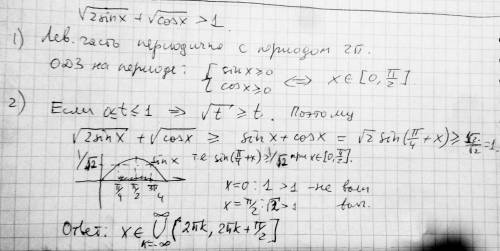 √2sinx + √cosx > 1
1) Лев. часть периодична с периодом 2π.
ОДЗ на периоде: { sinx ≥ 0 cosx ≥ 0 ⟺ x ∈ [0, π/2]
2) Если 0≤t≤1 ⟹ √t ≥ t. Поэтому
√2sinx + √cosx ≥ sinx + cosx = √2 sin(π/4 + x) ≥ √2/√2 = 1
1/√2 sinx т.е. sin(π/4+x) ≥ 1/√2 при x∈[0, π/2].
π/4 π/2 3π/4 x=0: 1 > 1 - не вып
x = π/2: √2 > 1 вып.
Ответ: x ∈ ∞ ⋃ k=-∞ (2πk, 2πk + π/2]